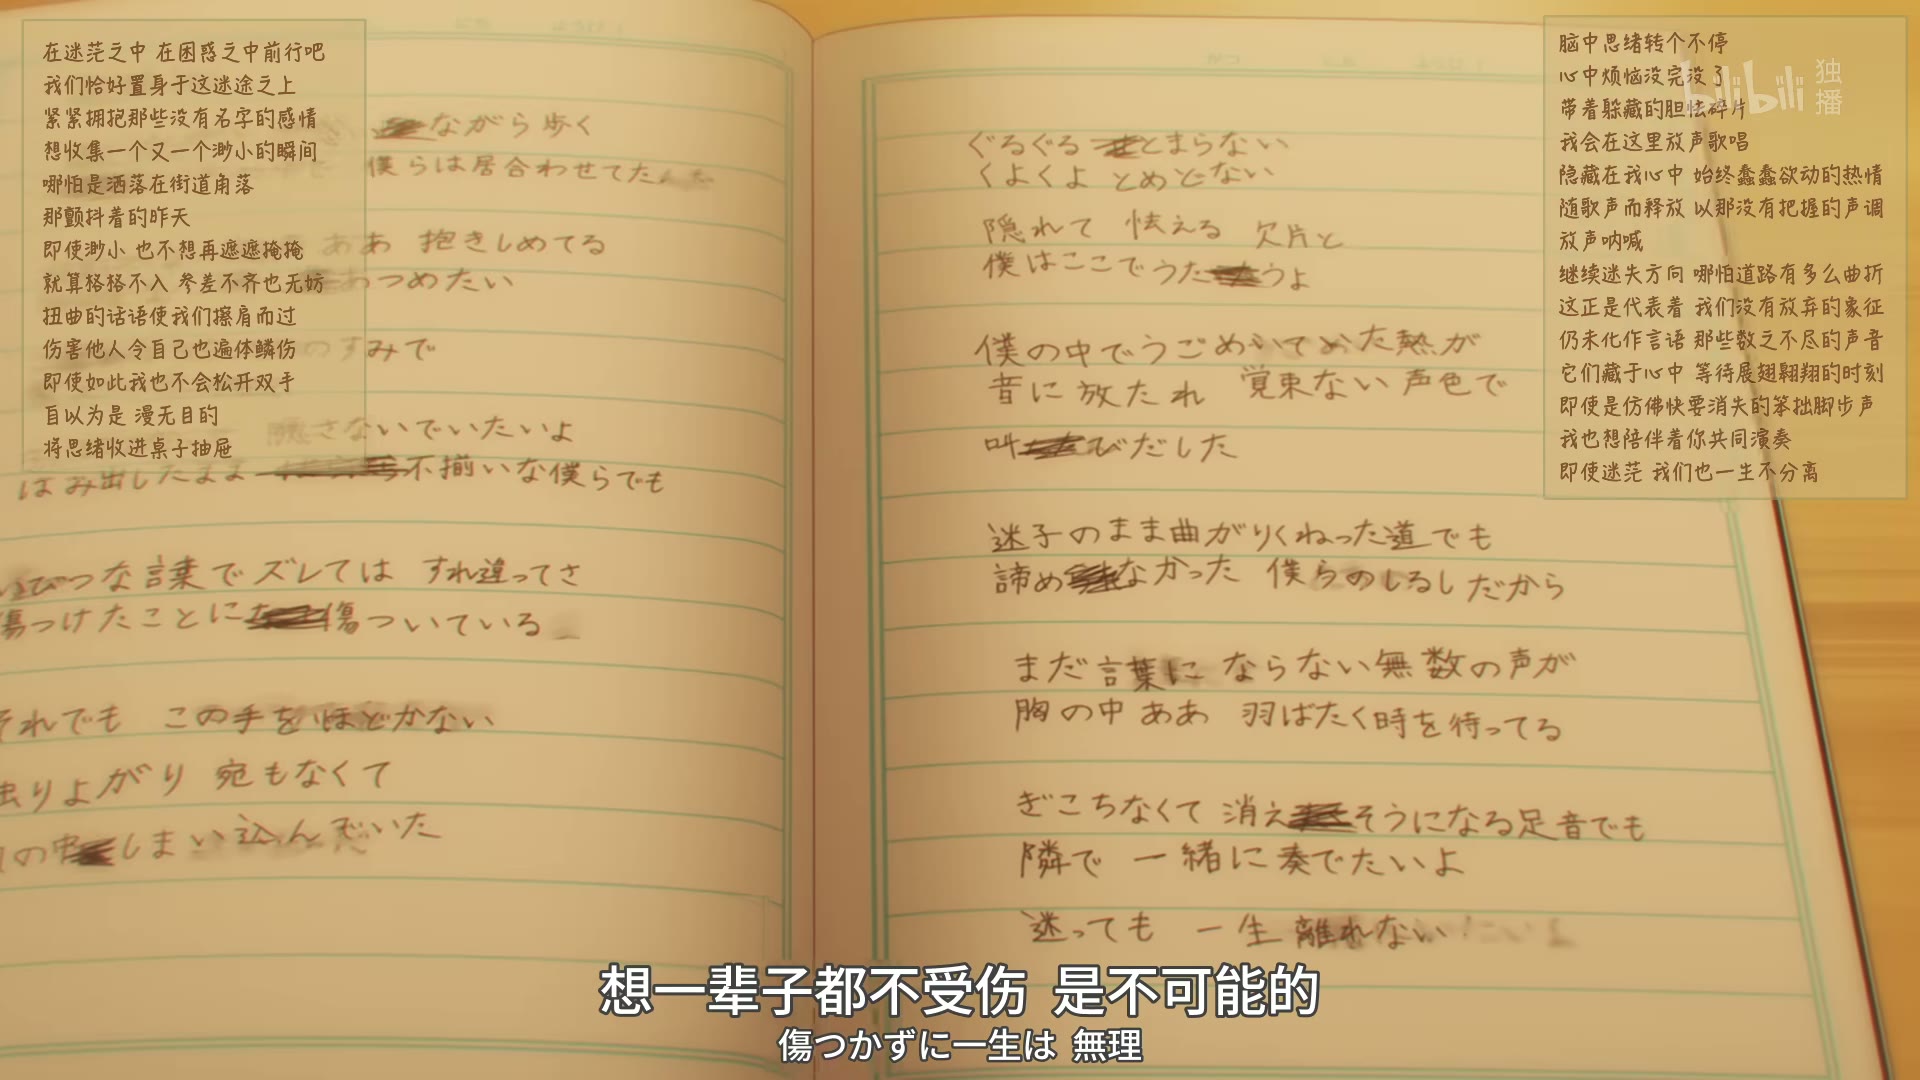 在迷茫之中 在困惑之中前行吧
我们恰好置身于这迷途之上
紧紧拥抱那些没有名字的感情
想收集一个又一个渺小的瞬间
哪怕是洒落在街道角落
那颤抖着的昨天
即使渺小 也不想再遮遮掩掩
就算格格不入 参差不齐也无妨
扭曲的话语使我们擦肩而过
伤害他人令自己也遍体鳞伤
即使如此我也不会松开双手
自以为是 漫无目的
将思绪收进桌子抽屉
ながら歩く
僕らは居合わせてた
ああ 抱きしめてる
あつめたい
のすみで
隠さないでいたいよ
はみ出したまま 不揃いな僕らでも
いびつな言葉でズレては すれ違ってさ
傷つけたことに傷ついている
それでも この手をほどかない
りよがり 宛もなくて
の中しまい込んでいた
ぐるぐる とまらない
くよくよ とめどない
隠れて 怯える 欠片と
僕はここでうたうよ
僕の中でうごめいてた熱が
音に放たれ 覚束ない声色で
叫びだした
迷子のまま曲がりくねった道でも
諦めなかった 僕らのしるしだから
まだ言葉にならない無数の声が
胸の中 ああ 羽ばたく時を待ってる
ぎこちなくて 消えそうになる足音でも
隣で 一緒に奏でたいよ
迷っても 一生離れない
脑中思绪转个不停
心中烦恼没完没了
带着躲藏的胆怯碎片
我会在这里放声歌唱
隐藏在我心中 始终蠢蠢欲动的热情
随歌声而释放 以那没有把握的声调
放声呐喊
继续迷失方向 哪怕道路有多么曲折
这正是代表着 我们没有放弃的象征
仍未化作言语 那些数之不尽的声音
它们藏于心中 等待展翅翱翔的时刻
即使是仿佛快要消失的笨拙脚步声
我也想陪伴着你共同演奏
即使迷茫 我们也一生不分离
bilibili 独播
想一辈子都不受伤 是不可能的
傷つかずに一生は 無理